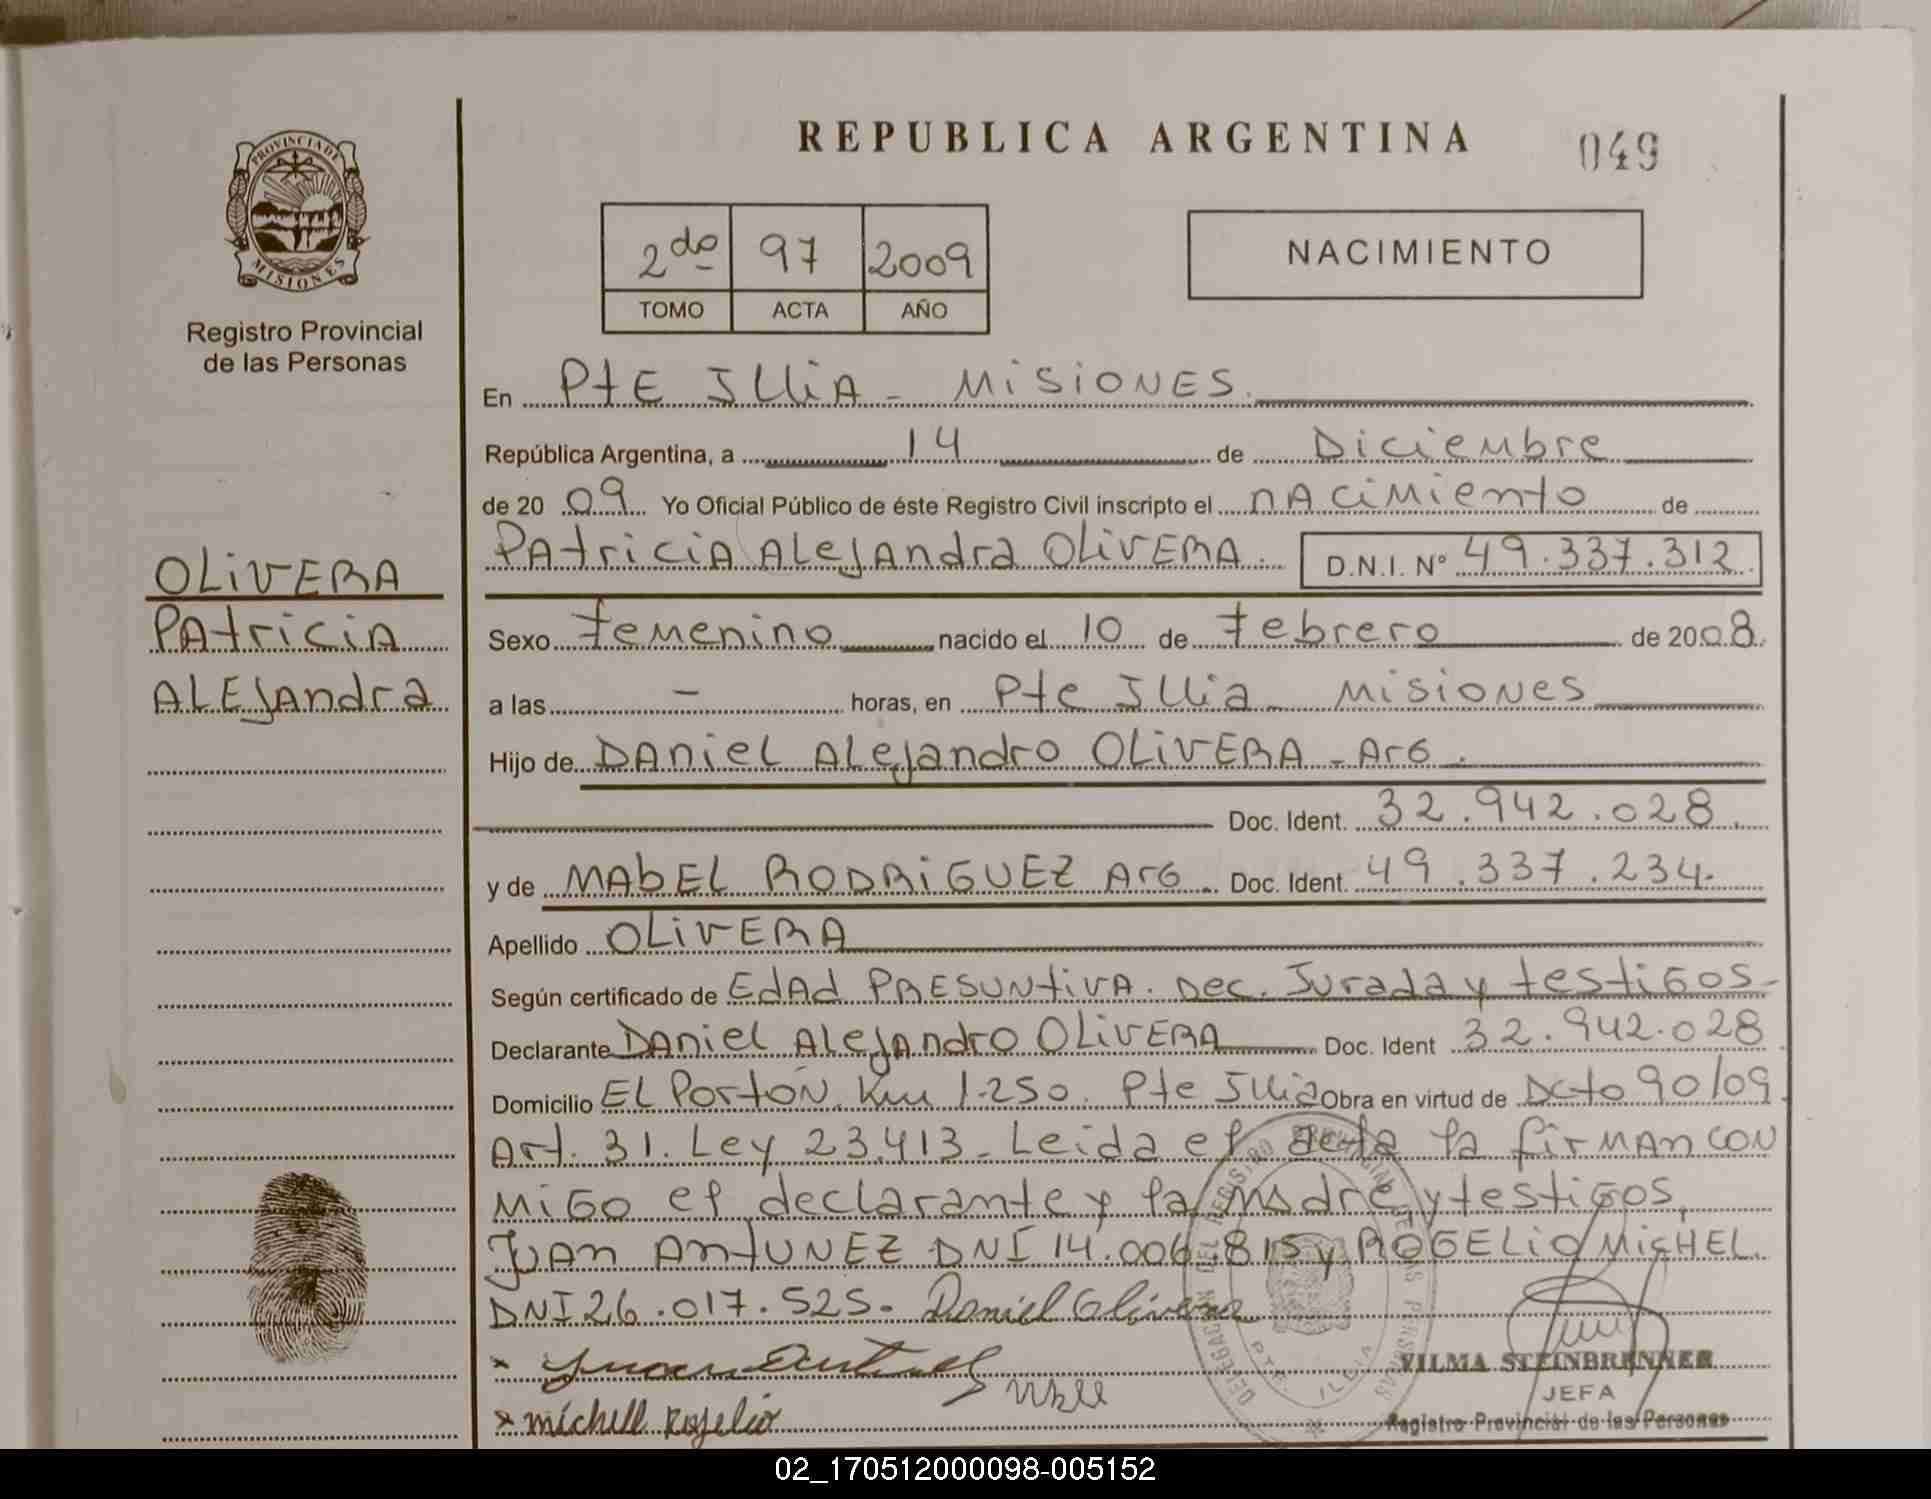 REPUBLICA ARGENTINA
049
PROVINCIA DE
MISIONES
Registro Provincial
de las Personas
2do 97 2009
TOMO ACTA AÑO
NACIMIENTO
En PtE Illia - Misiones.
República Argentina, a 14 de Diciembre
de 2009 Yo Oficial Público de éste Registro Civil inscripto el nacimiento de
Patricia Alejandra OLIVERA. D.N.I. Nº 49.337.312
OLIVERA
Patricia
Alejandra
Sexo femenino nacido el 10 de febrero de 2008.
a las - horas, en Pte Illia - Misiones
Hijo de Daniel Alejandro OLIVERA - Arg.
Doc. Ident. 32.942.028.
y de MABEL RODRIGUEZ Arg Doc. Ident. 49.337.234.
Apellido OLIVERA
Según certificado de Edad PRESUNtiVA. Dec. Jurada y testigos-
Declarante Daniel Alejandro OLIVERA Doc. Ident 32.942.028
Domicilio El Portón. Km 1.250. Pte Illia Obra en virtud de Dcto 90/09
Art. 31. Ley 23.413. Leida el acta la firman con
migo el declarante y la madre, y testigos,
Juan ANTUNEZ DNI 14.006.815 y ROGELIO MICHEL.
DNI 26.017.525. Daniel Olivera
x
x michell Rojelio
DELEGACION DEL REGISTRO PROVINCIAL DE LAS PERSONAS
PTE. ILLIA
VILMA STEINBRENNER
JEFA
Registro Provincial de las Personas
02_170512000098-005152